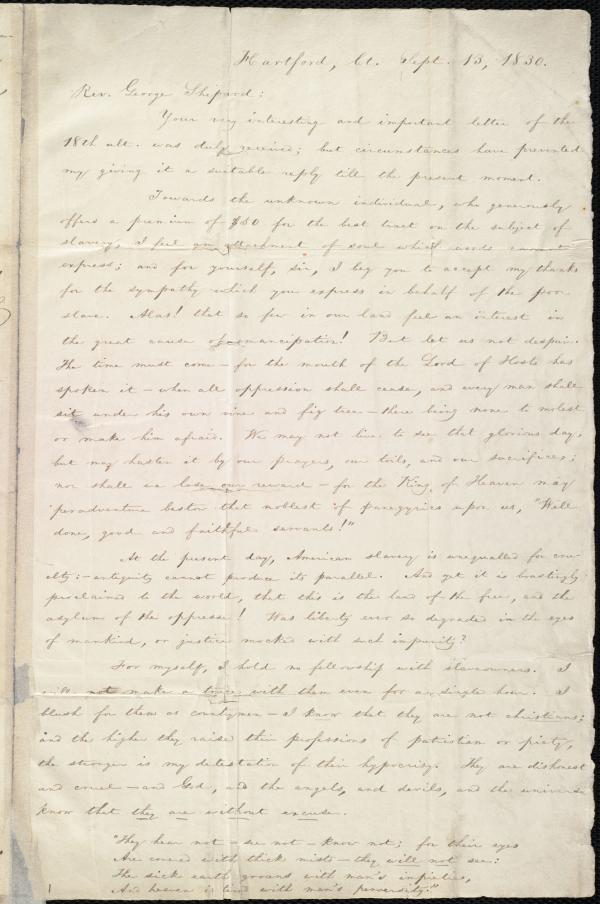 Hartford, Ct. Sept. 13, 1830.
Rev. George Shepard:
Your very interesting and important letter of the
18th ult. was duly received; but circumstances have prevented
my giving it a suitable reply till the present moment.
Towards the unknown individual, who generously
offers a premium of $50 for the best tract on the subject of
slavery, I feel an attachment of soul which words cannot
express; and for yourself, sir, I beg you to accept my thanks
for the sympathy which you express in behalf of the poor
slave. Alas! that so few in our land feel an interest in
the great cause of emancipation! But let us not despair.
The time must come — for the mouth of the Lord of Hosts has
spoken it — when all oppression shall cease, and every man shall
sit under his own vine and fig tree — there being none to molest
or make him afraid. We may not live to see that glorious day,
but may hasten it by our prayers, our toils, and our sacrifices;
nor shall we lose our reward — for the King of Heaven may
peradventure bestow that noblest of panegyrics upon us, "Well
done, good and faithful servants!"
At the present day, American slavery is unequalled for cru-
elty: — antiquity cannot produce its parallel. And yet it is boastingly
proclaimed to the world, that this is the land of the free, and the
asylum of the oppresse! Was liberty ever so degraded in the eyes
of mankind, or justice mocked with such impunity?
For myself, I hold no fellowship with slaveowners. I
will not make a truce with them even for a single hour. I
blush for them as countrymen — I know that they are not christians;
and the higher they raise their professions of patriotism or piety,
the stronger is my detestation of their hypocrisy. They are dishonest
and cruel — and God, and the angels, and devils, and the universe
know that they are without excuse.
"They hear not — see not — know not; for their eyes
Are covered with thick mists — they will not see:
The sick earth groans with man's impieties,
And heaven is tired with man's perversity."